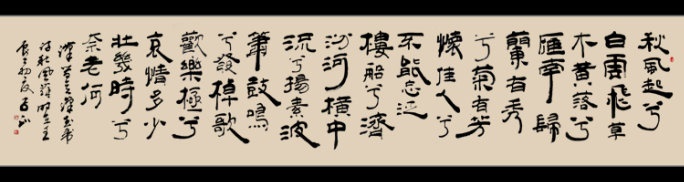 秋風起兮
白雲飛草
木黃落兮
雁南歸
蘭有秀
兮菊有芳
懷佳人兮
不能忘泛
樓船兮濟
汾河橫中
流兮揚素波
簫鼓鳴
兮發棹歌
歡樂極兮
哀情多少
壯幾時兮
奈老何
詩秋風辭時在壬
辰之初夏